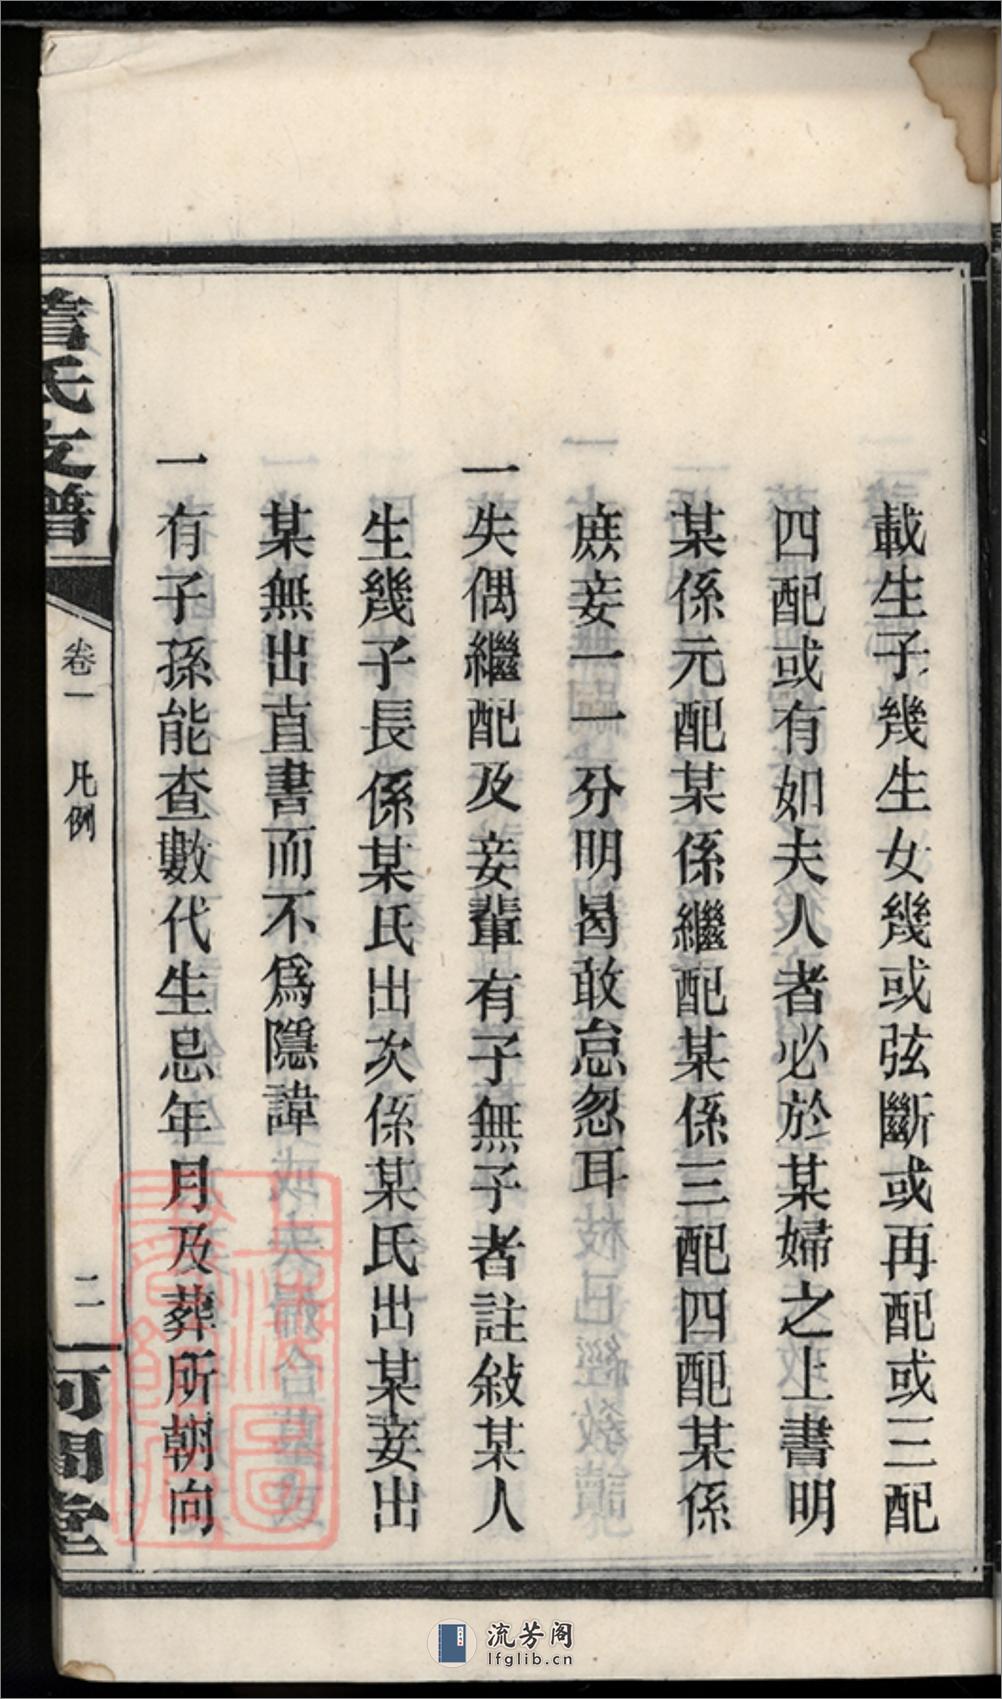 載生子幾生女幾或弦斷或再配或三配
四配或有如夫人者必於某婦之上書明
某係元配某係繼配某係三配四配某係
庶妾一一分明曷敢怠忽耳
一失偶繼配及妾輩有子無子者註敍某人
生幾子長係某氏出次係某氏出某妾出
某無出直書而不爲隱諱
一有子孫能查數代生忌年月及葬所朝向
氏支譜
卷一
凡例
二
河間堂
流芳阁
lfglib.cn